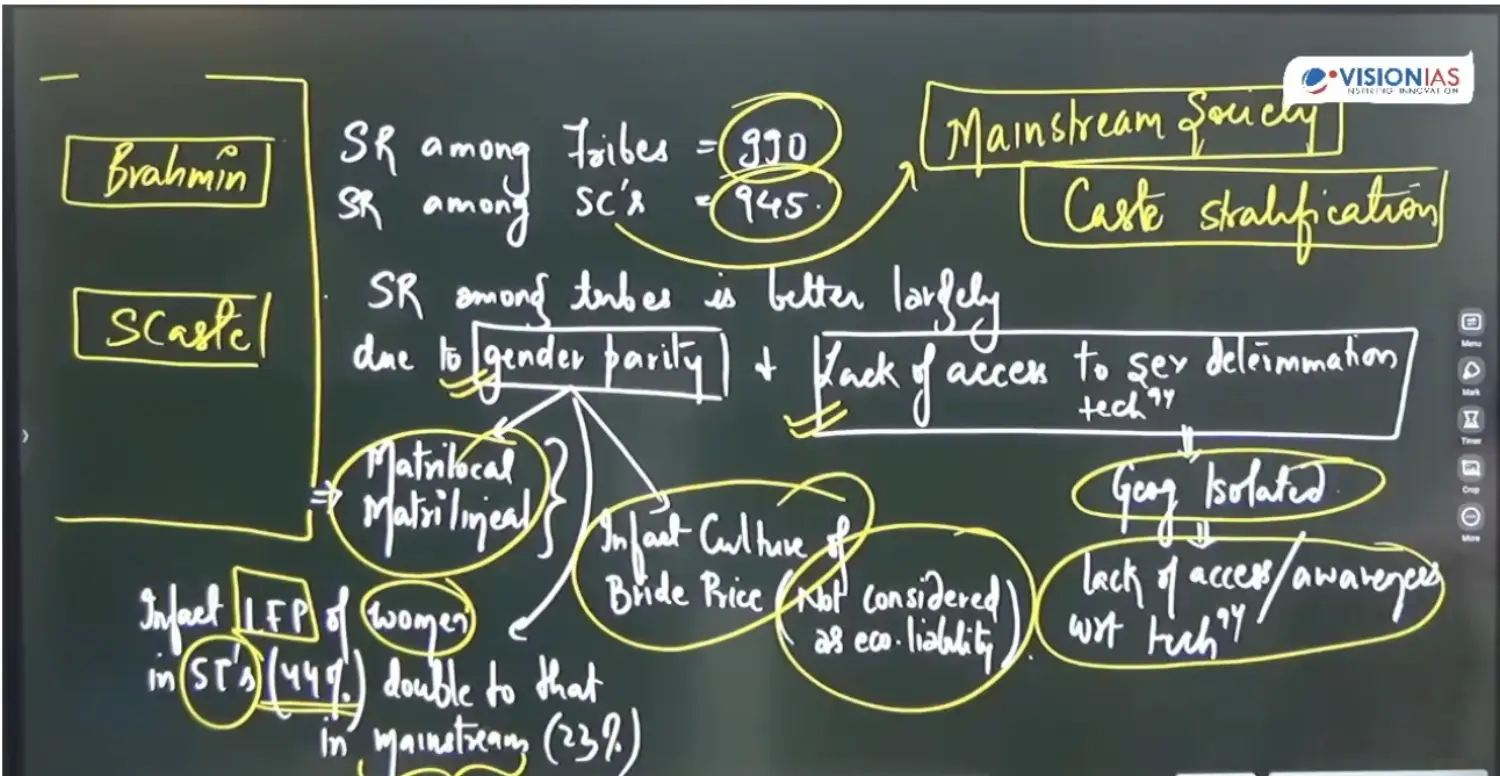 VISIONIAS
INSPIRING INNOVATION
Mainstream Society
Caste stratification
Brahmin
SCaste
SR among Tribes = 990
SR among SC's = 945.
SR among tribes is better largely
due to gender parity + Lack of access to sex determination
tech gy
Matrilocal
Matrilineal
Geog Isolated
Infact Culture of
Bride Price (Not considered
as eco. liability)
lack of access/awareness
wrt tech gy
Infact LFP of women
in ST's (44%) double to that
in mainstream (23%)
Menu
Mark
Timer
Crop
More